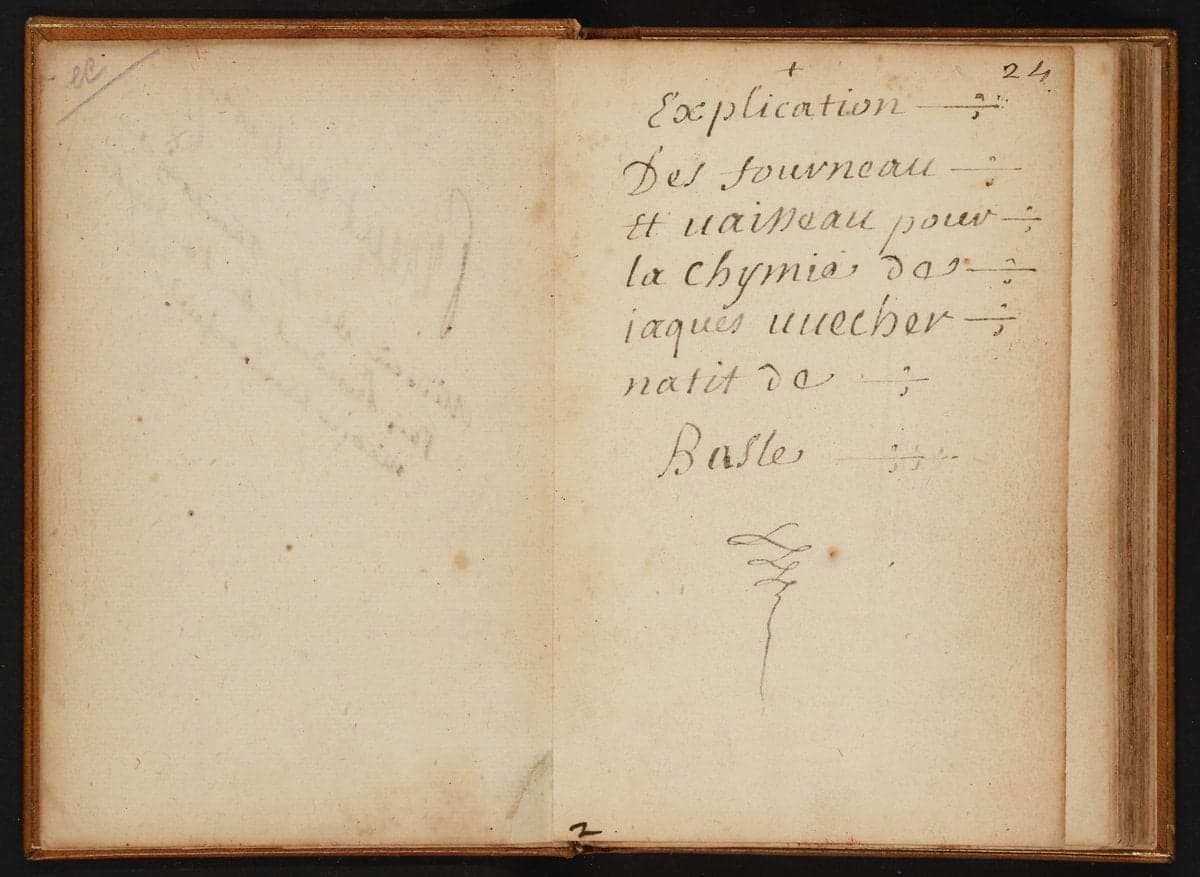 24
+
Explication
Des fourneau
Et uaisseau pour
la Chymie des
iaques uuecher
natif de
Basle
2